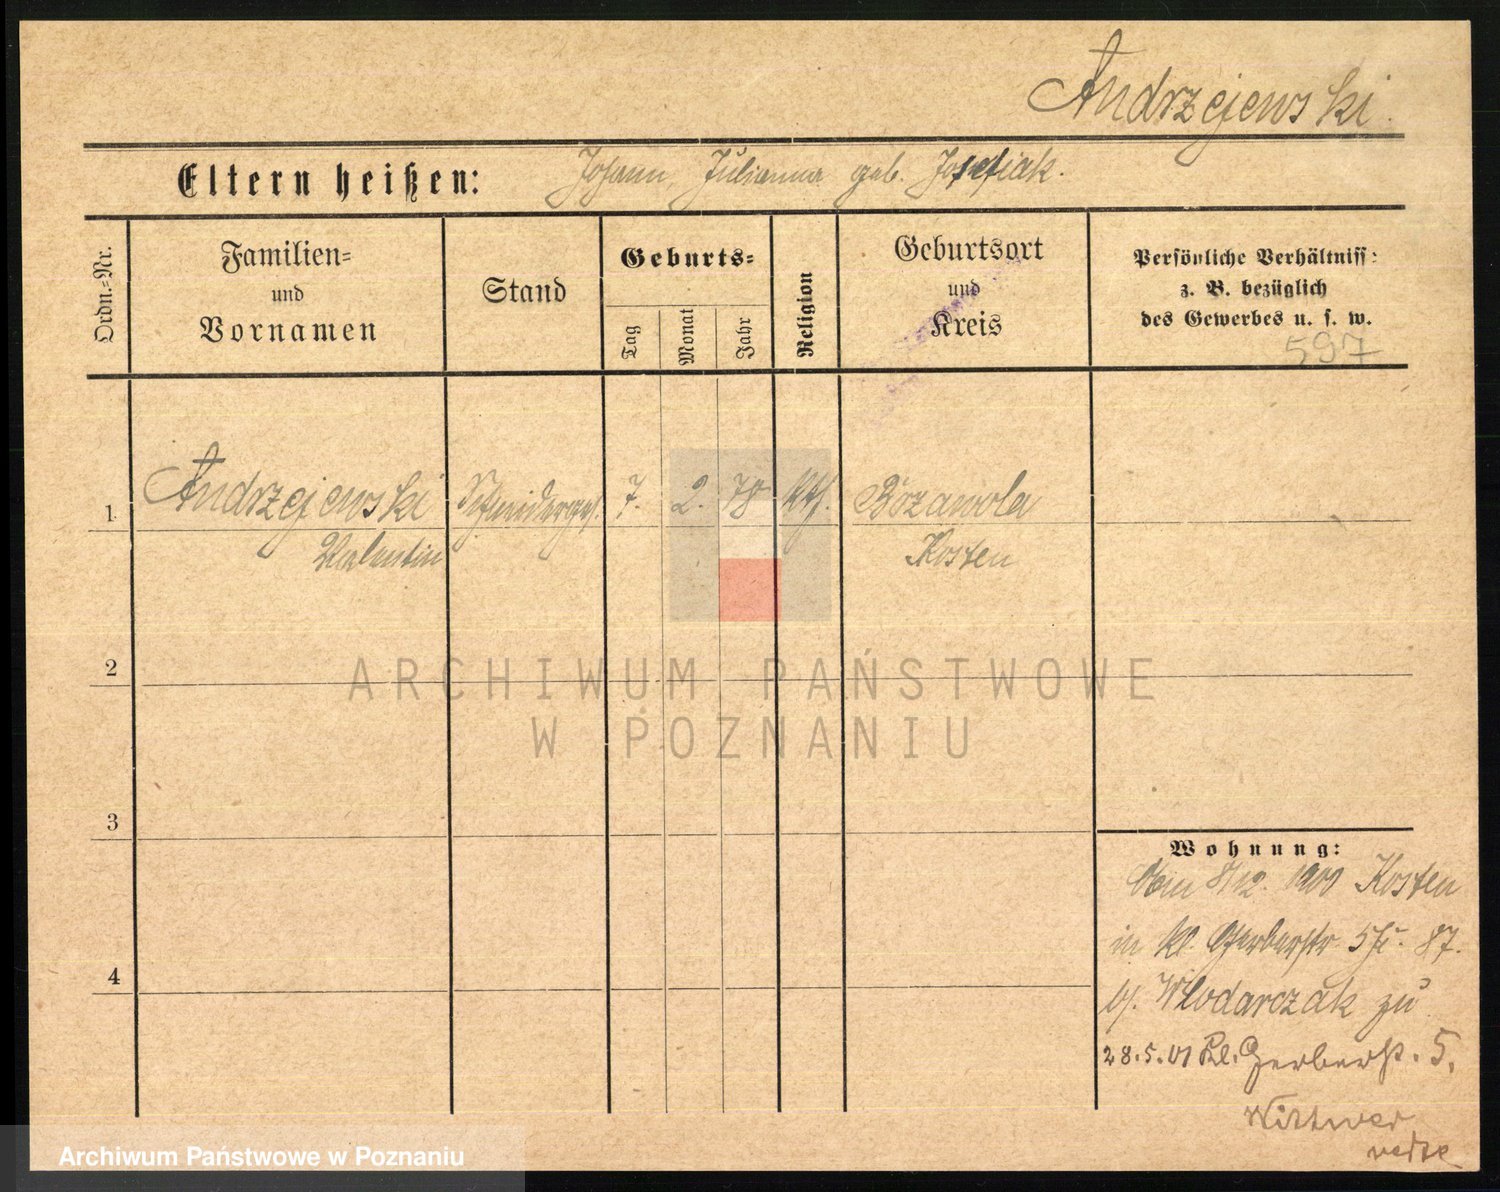 Andrzejewski.
Eltern heißen: Johann, Julianna geb. Josefiak.
Ordn.=Nr.
Familien=
und
Vornamen
Stand
Geburts=
Tag
Monat
Jahr
Religion
Geburtsort
und
Kreis
Persönliche Verhältniss:
z. B. bezüglich
des Gewerbes u. s. w.
597
1 Andrzejewski Schneiderges. 7. 2. 78 kth. Borzawola
Valentin Kosten
2
ARCHIWUM PAŃSTWOWE
W POZNANIU
3
Wohnung:
Vom 8/12. 1900 Kosten
in kl. Gerberstr 5 87.
b/. Wlodarczak zu
4
28.5.01 Kl. Gerberst. 5.
Wittwer
Archiwum Państwowe w Poznaniu